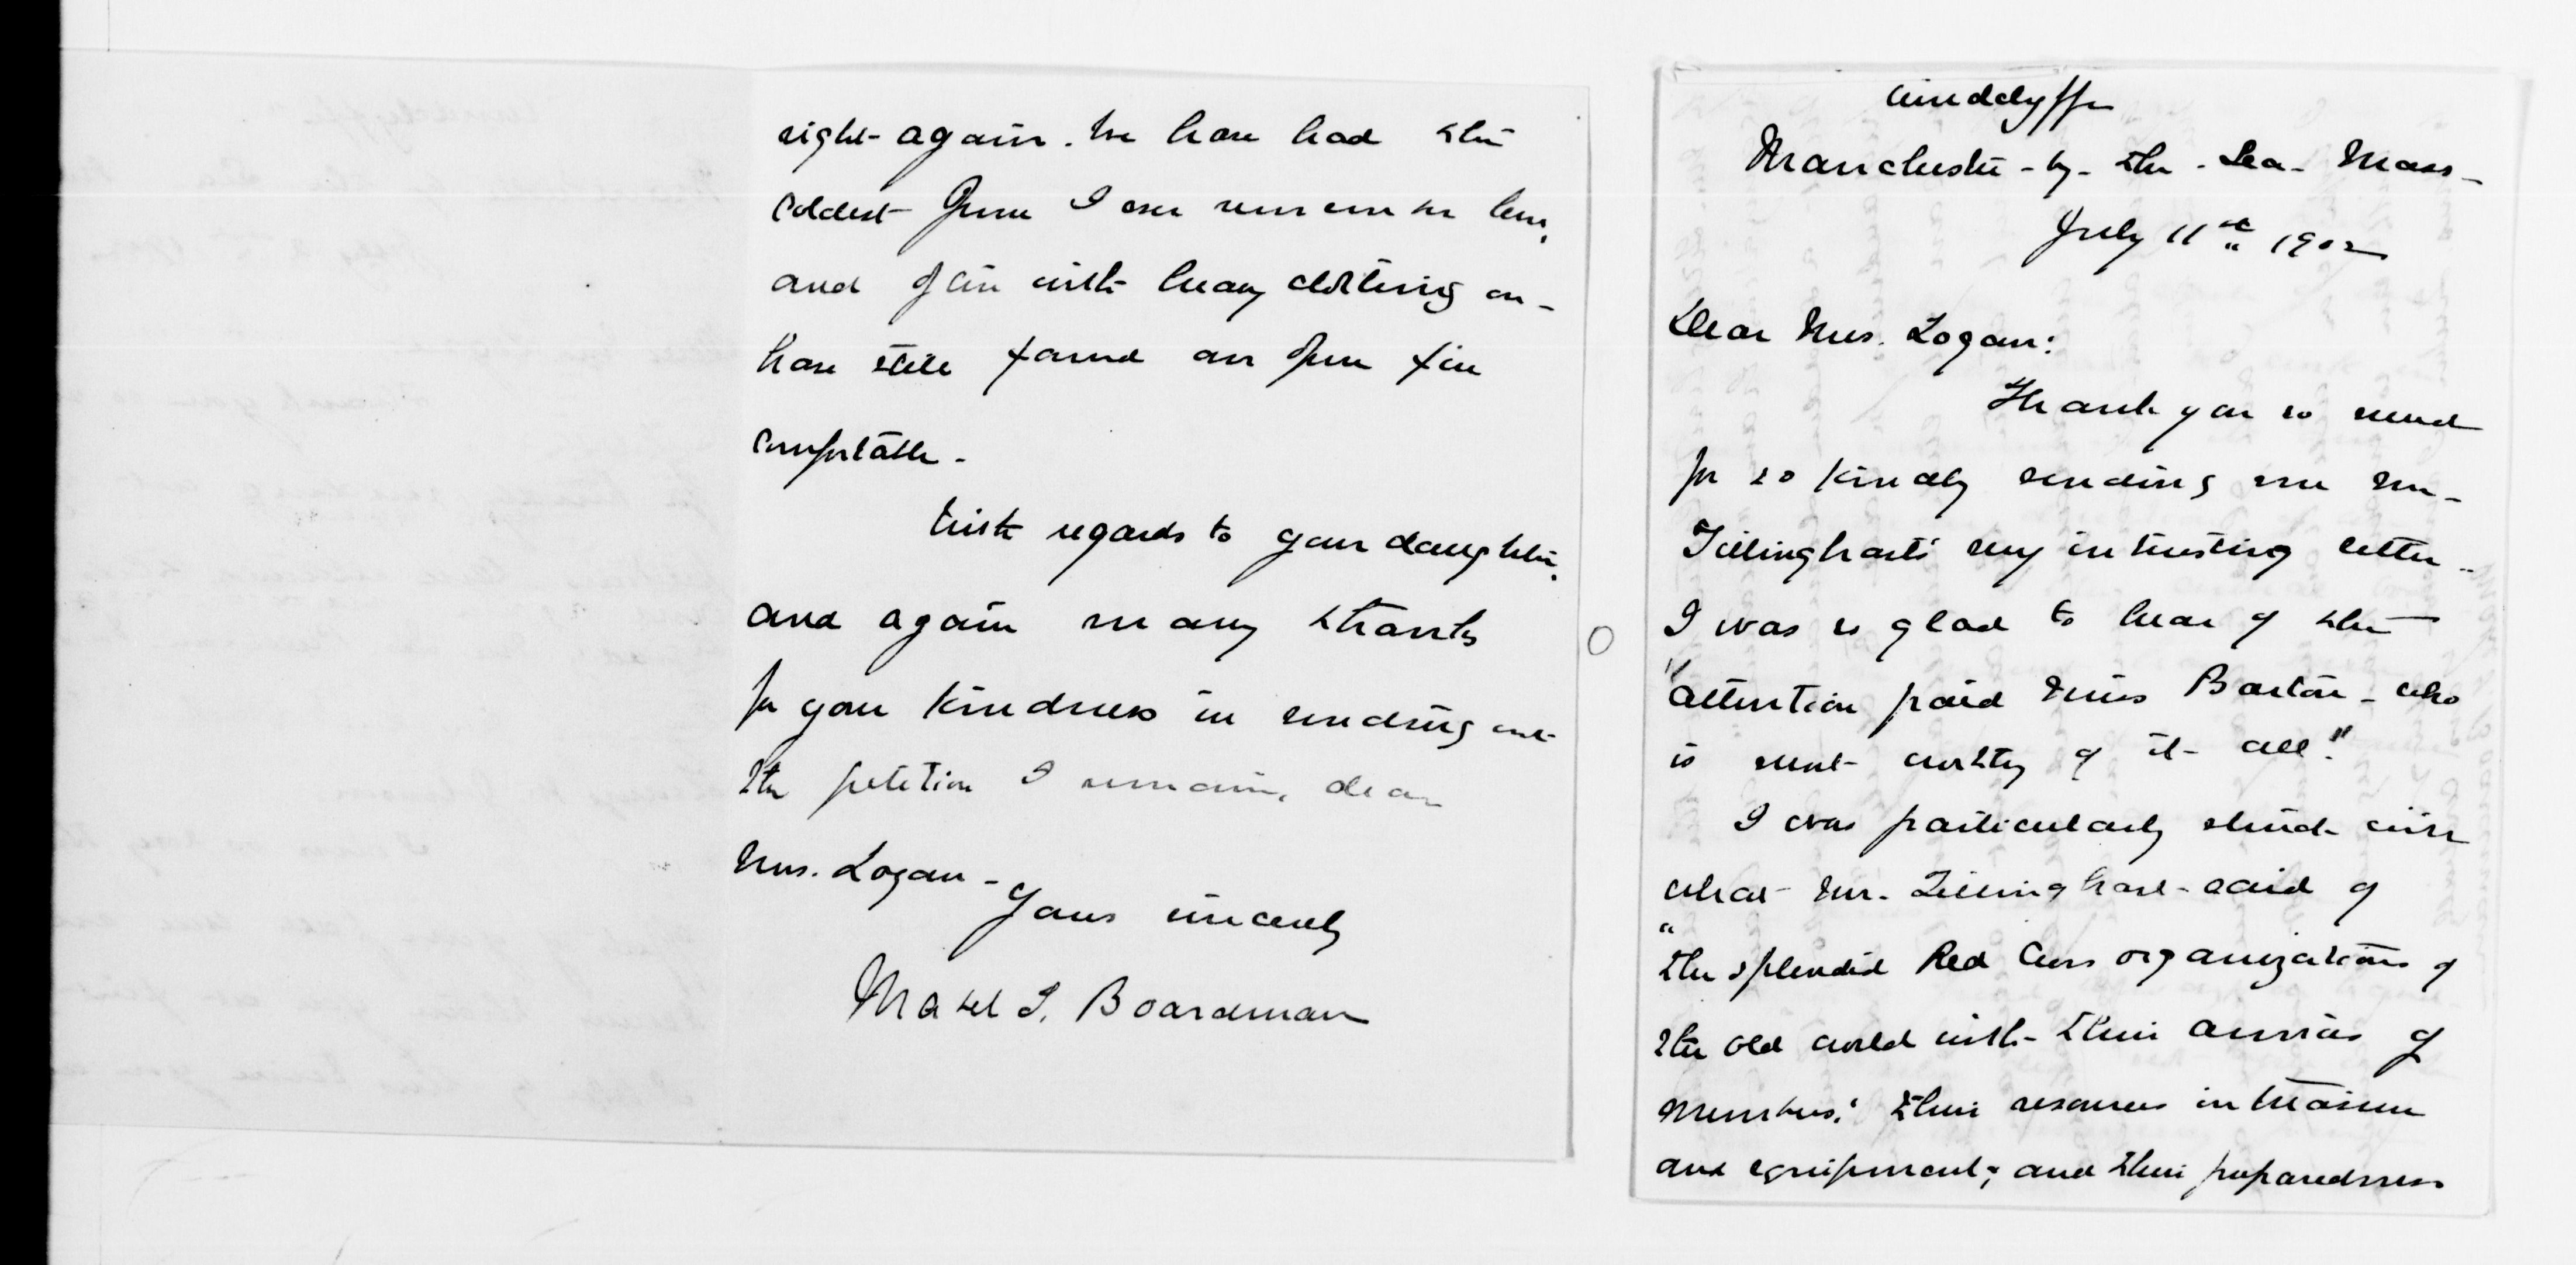 right again. We have had the
coldest June I ever remember here,
and often with heavy clothing on –
have still found an open fire
comfortable –
With regards to your daughter,
and again many thanks
for your kindness in sending me
the petition I remain, dear
Mrs. Logan –
Yours sincerely
Mabel T. Boardman
Windclyffe
Manchester - by - the - Sea - Mass –
July 11th 1902
Dear Mrs. Logan:
Thank you so much
for so kindly sending me Mr –
Tillinghast's very interesting letter –
I was so glad to hear of the
"attention paid Miss Barton – who
is most worthy of it all."
I was particularly struck with
what Mr. Tillinghast said of
"the splendid Red Cross organizations of
the old world with their armies of
members; their resources in treasure
and equipment; and their preparedness